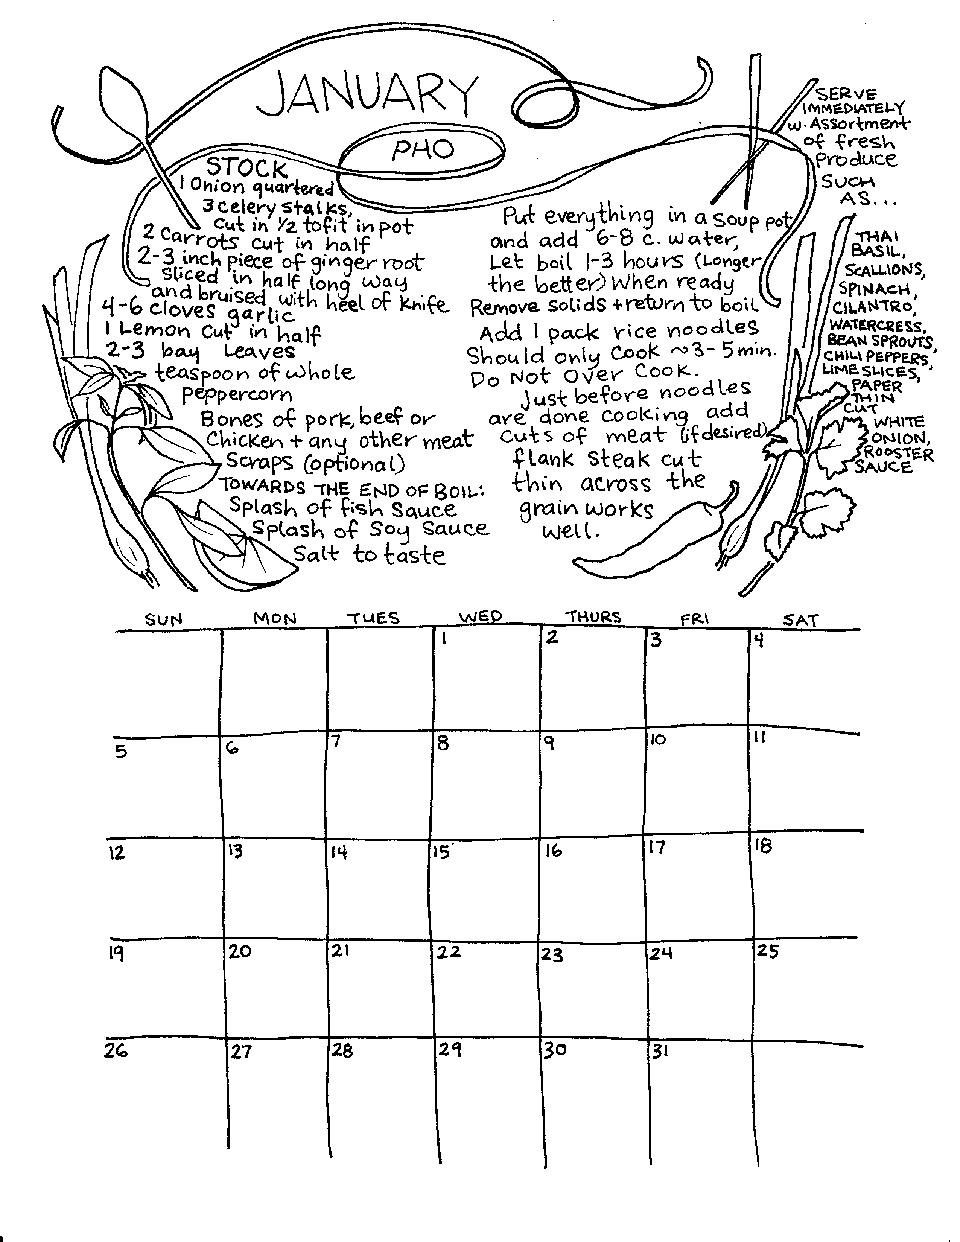 JANUARY
PHO
STOCK
1 Onion quartered
3 Celery Stalks,
Cut in 1/2 to fit in pot
2 Carrots cut in half
2-3 inch piece of ginger root
Sliced in half long way
and bruised with heel of knife
4-6 cloves garlic
1 Lemon Cut in half
2-3 bay Leaves
teaspoon of whole
peppercorn
Bones of pork, beef or
Chicken + any other meat
Scraps (optional)
TOWARDS THE END OF BOIL:
Splash of fish Sauce
Splash of Soy Sauce
Salt to taste
Put everything in a soup pot
and add 6-8 c. water,
Let boil 1-3 hours (Longer
the better) When ready
Remove solids + return to boil
Add 1 pack rice noodles
Should only Cook ~3-5 min.
Do Not Over Cook.
Just before noodles
are done cooking add
cuts of meat (if desired)
flank steak cut
thin across the
grain works
well.
SERVE
IMMEDIATELY
w. Assortment
of fresh
Produce
SUCH
AS...
THAI
BASIL,
SCALLIONS,
SPINACH,
CILANTRO,
WATERCRESS,
BEAN SPROUTS,
CHILI PEPPERS,
LIME SLICES,
PAPER
THIN
CUT
WHITE
ONION,
ROOSTER
SAUCE
SUN MON TUES WED THURS FRI SAT
1 2 3 4
5 6 7 8 9 10 11
12 13 14 15 16 17 18
19 20 21 22 23 24 25
26 27 28 29 30 31